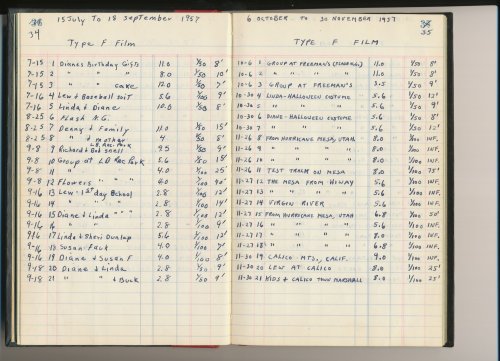 34
15 July To 18 September 1957
Type F Film
7-15 1 Diane's Birthday Gifts 11.0 1/50 8'
7-15 2 " " " 8.0 1/50 10'
7-15 3 " " cake 12.0 1/50 7'
7-16 4 Lew + Baseball suit 5.6 1/50 9'
7-16 5 Linda + Diane 10.0 1/50 8'
8-25 6 Flash N.G.
8-25 7 Denny + Family 11.0 1/50 15'
8-25 8 " + mother 4 1/50 8'
9-8 9 Richard + Bob Snell 9.5 1/50 9'
9-8 10 Group at L.B. Rec. Park 5.6 1/50 18'
9-8 11 " 4.0 1/100 25'
9-8 12 Flowers " " " 4.0 1/100
9-16 13 Lew - 1st day School 2.8 1/100 12'
9-16 14 " " " " 2.8 1/100 14'
9-16 15 Diane + Linda " " " 2.8 1/100 12'
9-16 16 " " 2.8 1/100 9'
9-16 17 Linda + Sheri Dunlap 5.6 1/100 12'
9-16 18 Susan Fack 4.0 1/100 7'
9-16 19 Diane + Susan F 4.0 1/100 8'
9-18 20 Diane + Linda 2.8 1/50 9'
9-18 21 " " + Buck 2.8 1/50 9'
35
6 OCTOBER TO 30 NOVEMBER 1957
TYPE F FILM
10-6 1 GROUP AT FREEMAN'S 11.0 1/50 8'
10-6 2 " " " 11.0 1/50 8'
10-6 3 GROUP AT FREEMAN'S 3.5 1/50 8'
10-30 4 LINDA-HALLOWEEN COSTUME 5.6 1/50 12'
10-30 5 " " " 5.6 1/50 9'
10-30 6 DIANE-HALLOWEEN COSTUME 5.6 1/50 8'
10-30 7 " " " 5.6 1/50 12'
11-26 8 FROM HURRICANE MESA, UTAH 8.0 1/100 INF.
11-26 9 " " " " 8.0 1/100 INF.
11-26 10 " " " " 8.0 1/100 INF.
11-26 11 TEST TRACK ON MESA 8.0 1/100 75'
11-27 12 THE MESA FROM HIWAY 5.6 1/100 INF.
11-27 13 " " " " 5.6 1/100 INF.
11-27 14 VIRGIN RIVER 5.6 1/100 INF.
11-27 15 FROM HURRICANE MESA, UTAH 6.8 1/100 50'
11-27 16 " " " " 6.8 1/100 INF.
11-27 17 " " " " 6.8 1/100 INF.
11-27 18 " " " " 6.8 1/100 INF.
11-30 19 CALICO MTS., CALIF. 9.0 1/100 INF.
11-30 20 LEW AT CALICO 8.0 1/100 25'
11-30 21 KIDS + CALICO TOWN MARSHALL 8.0 1/100 25'